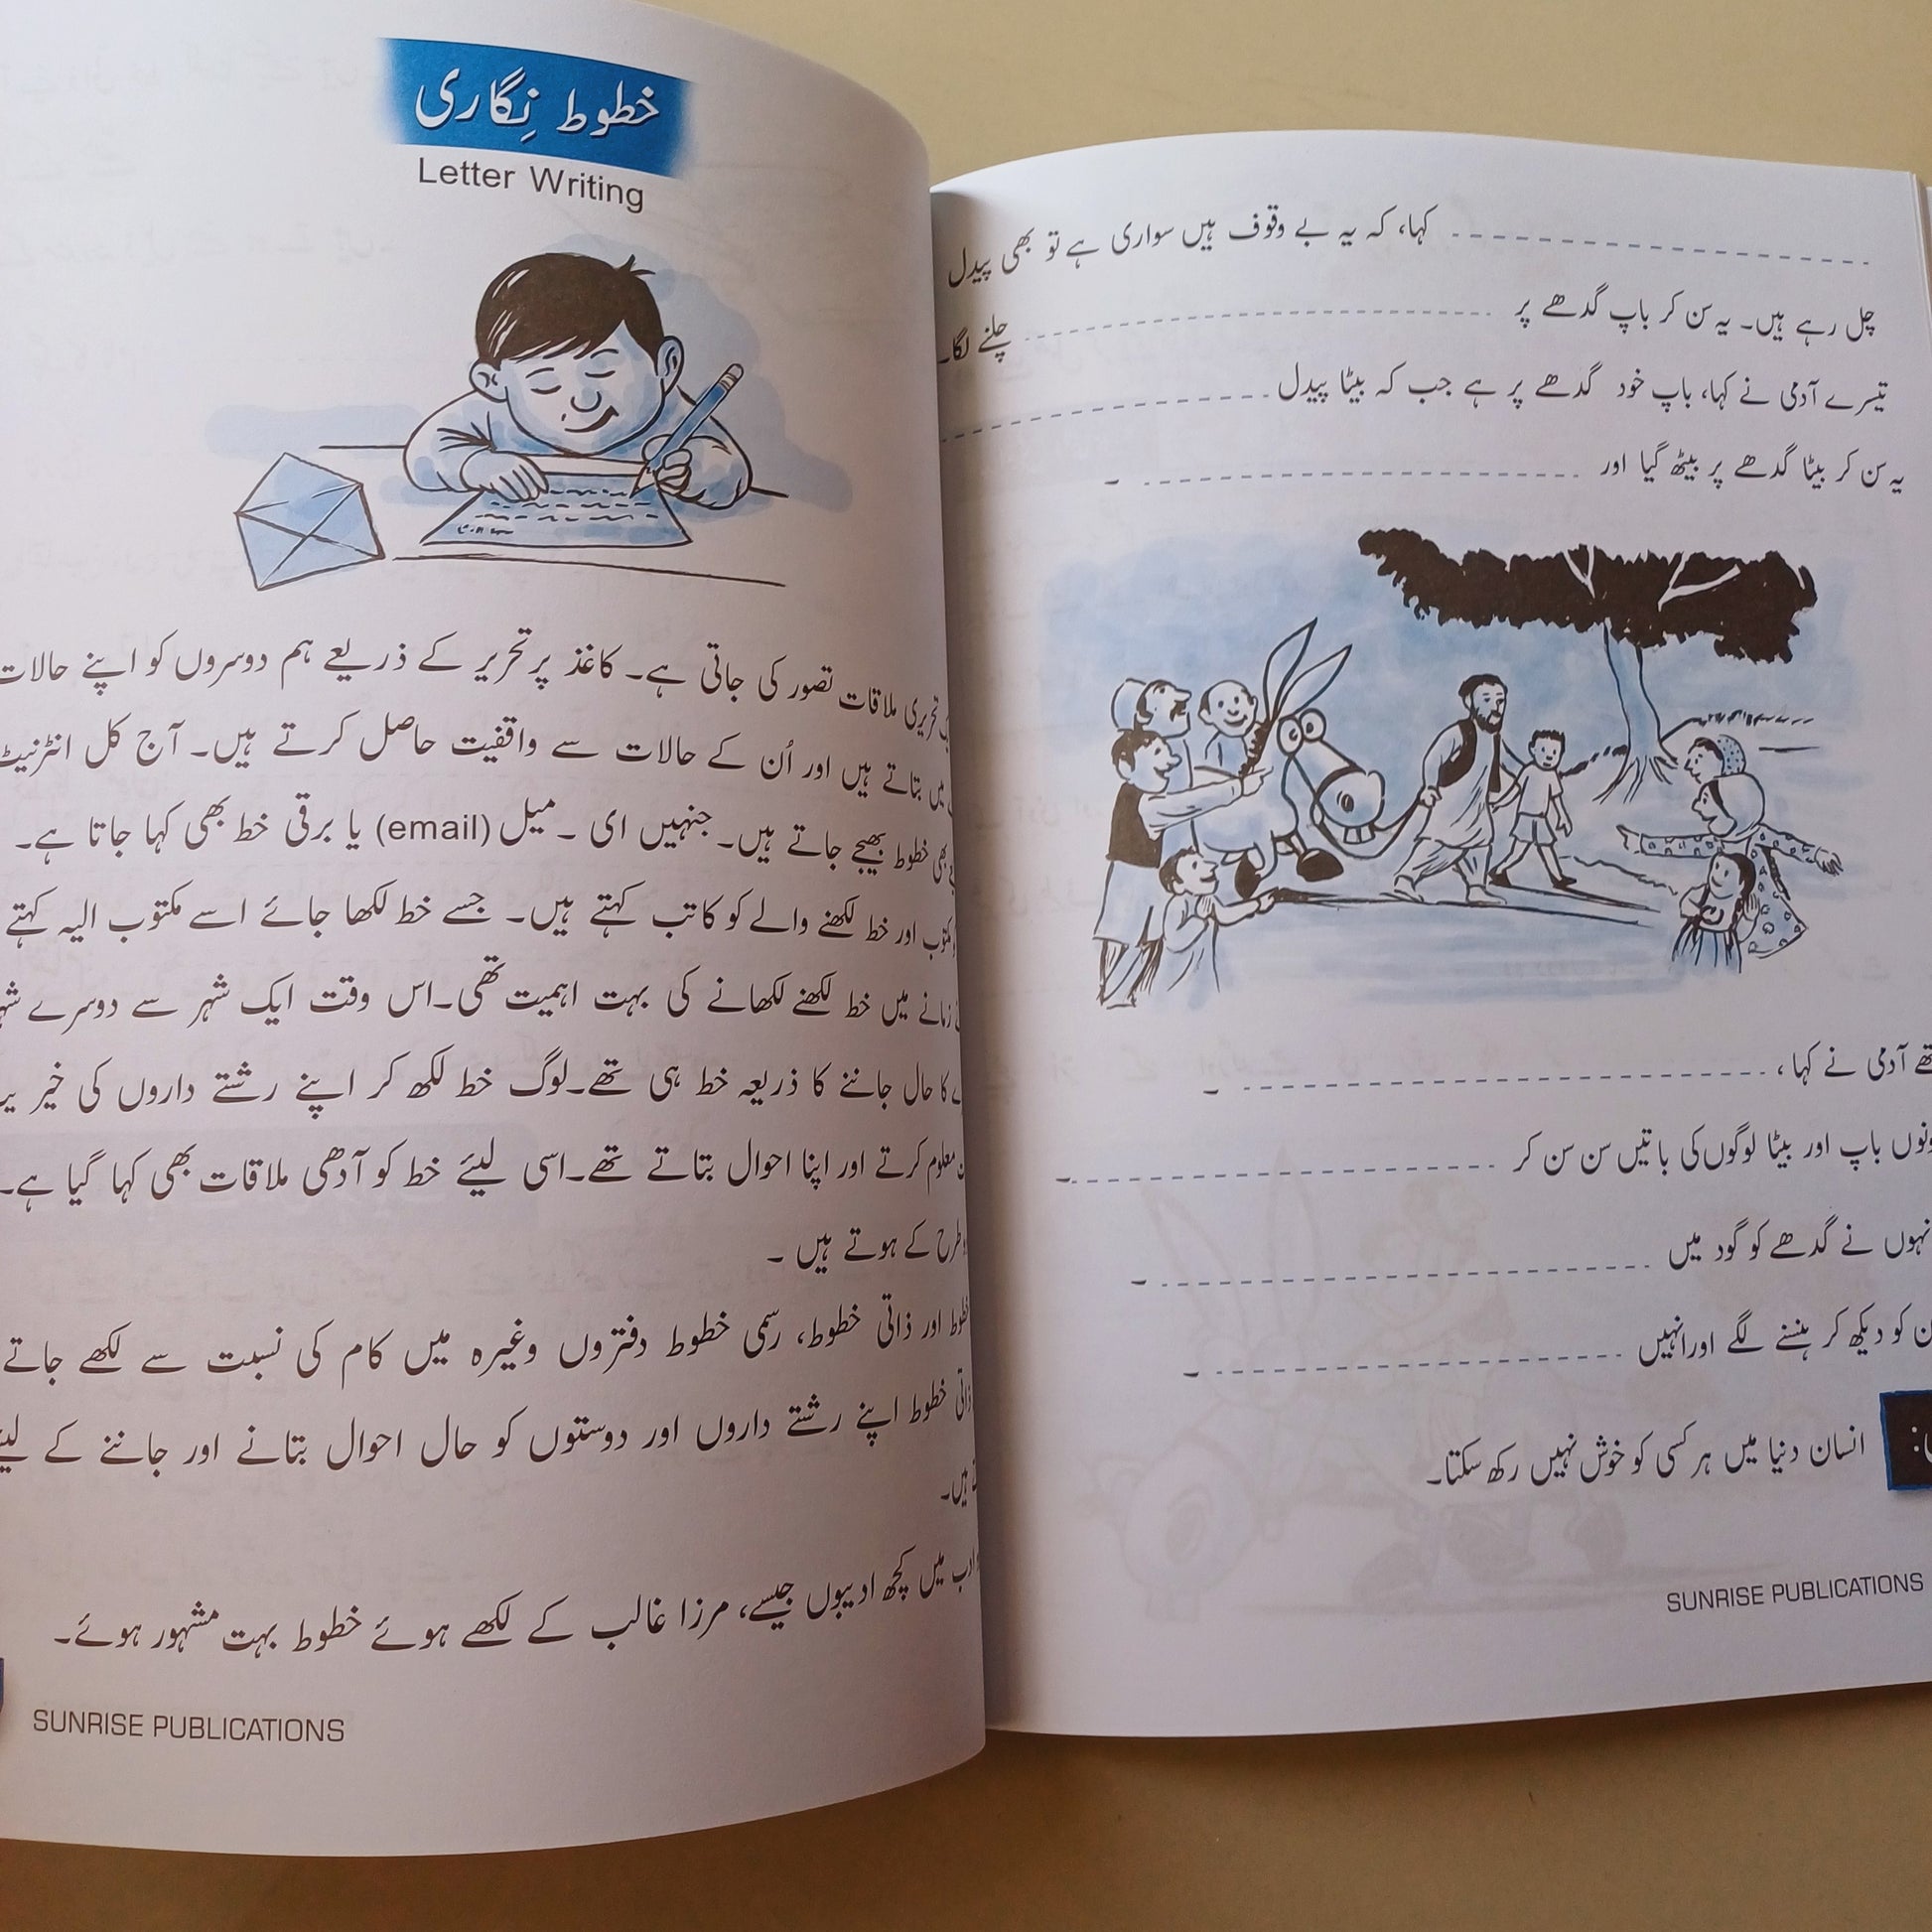 کہا، کہ یہ بے وقوف ہیں سواری ہے تو بھی پیدل
چل رہے ہیں۔ یہ سن کر باپ گدھے پر چلنے لگا۔
تیسرے آدمی نے کہا، باپ خود گدھے پر ہے جب کہ بیٹا پیدل
یہ سن کر بیٹا گدھے پر بیٹھ گیا اور ۔
آدمی نے کہا، ۔
باپ اور بیٹا لوگوں کی باتیں سن سن کر ۔
نے گدھے کو گود میں ۔
کو دیکھ کر ہنسنے لگے اور انہیں ۔
انسان دنیا میں ہر کسی کو خوش نہیں رکھ سکتا۔
SUNRISE PUBLICATIONS
خطوط نِگاری
Letter Writing
تحریری ملاقات تصور کی جاتی ہے۔ کاغذ پر تحریر کے ذریعے ہم دوسروں کو اپنے حالات
میں بتاتے ہیں اور اُن کے حالات سے واقفیت حاصل کرتے ہیں۔ آج کل انٹرنیٹ
بھی خطوط بھیجے جاتے ہیں۔ جنہیں ای ۔ میل (email) یا برقی خط بھی کہا جاتا ہے۔
مکتوب اور خط لکھنے والے کو کاتب کہتے ہیں۔ جسے خط لکھا جائے اسے مکتوب الیہ کہتے
زمانے میں خط لکھنے لکھانے کی بہت اہمیت تھی۔اس وقت ایک شہر سے دوسرے
کا حال جاننے کا ذریعہ خط ہی تھے۔لوگ خط لکھ کر اپنے رشتے داروں کی خیر
معلوم کرتے اور اپنا احوال بتاتے تھے۔اسی لیئے خط کو آدھی ملاقات بھی کہا گیا ہے۔
طرح کے ہوتے ہیں ۔
خطوط اور ذاتی خطوط، رسمی خطوط دفتروں وغیرہ میں کام کی نسبت سے لکھے جاتے
ذاتی خطوط اپنے رشتے داروں اور دوستوں کو حال احوال بتانے اور جاننے کے
ہیں۔
ادب میں کچھ ادیبوں جیسے، مرزا غالب کے لکھے ہوئے خطوط بہت مشہور ہوئے۔
SUNRISE PUBLICATIONS